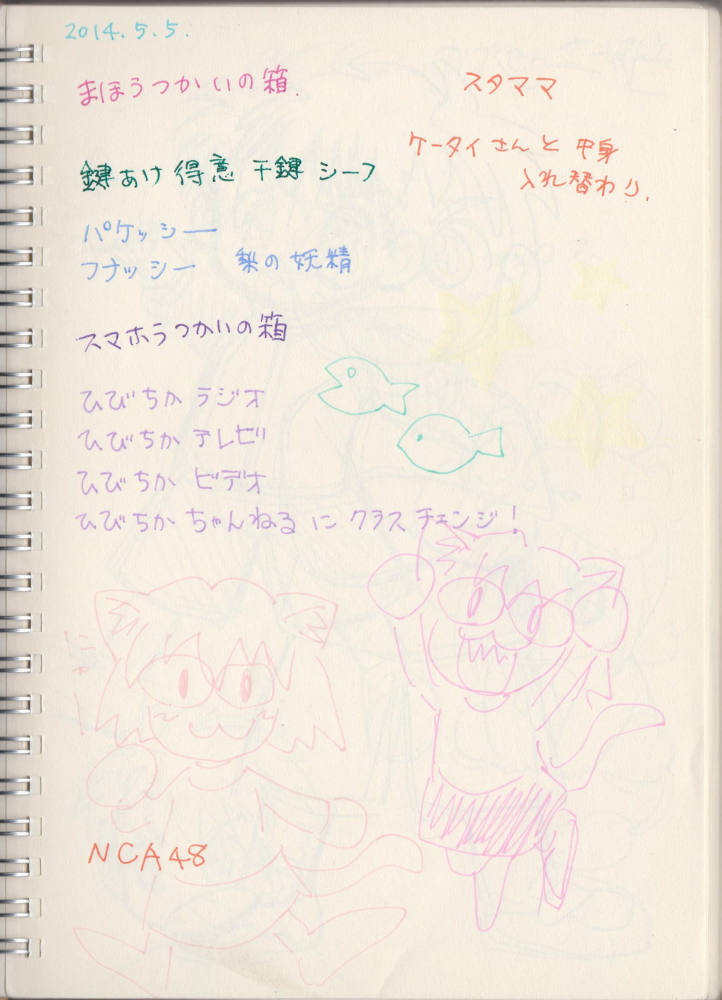 2014.5.5.
まほうつかいの箱.
スタママ
ケータイさんと中身
入れ替わり.
鍵あけ得意 干鍵 シーフ
パケッシー
フナッシー 梨の妖精
スマホうつかいの箱
ひびちか ラジオ
ひびちか テレビ
ひびちか ビデオ
ひびちか ちゃんねる に クラスチェンジ!
NCA48